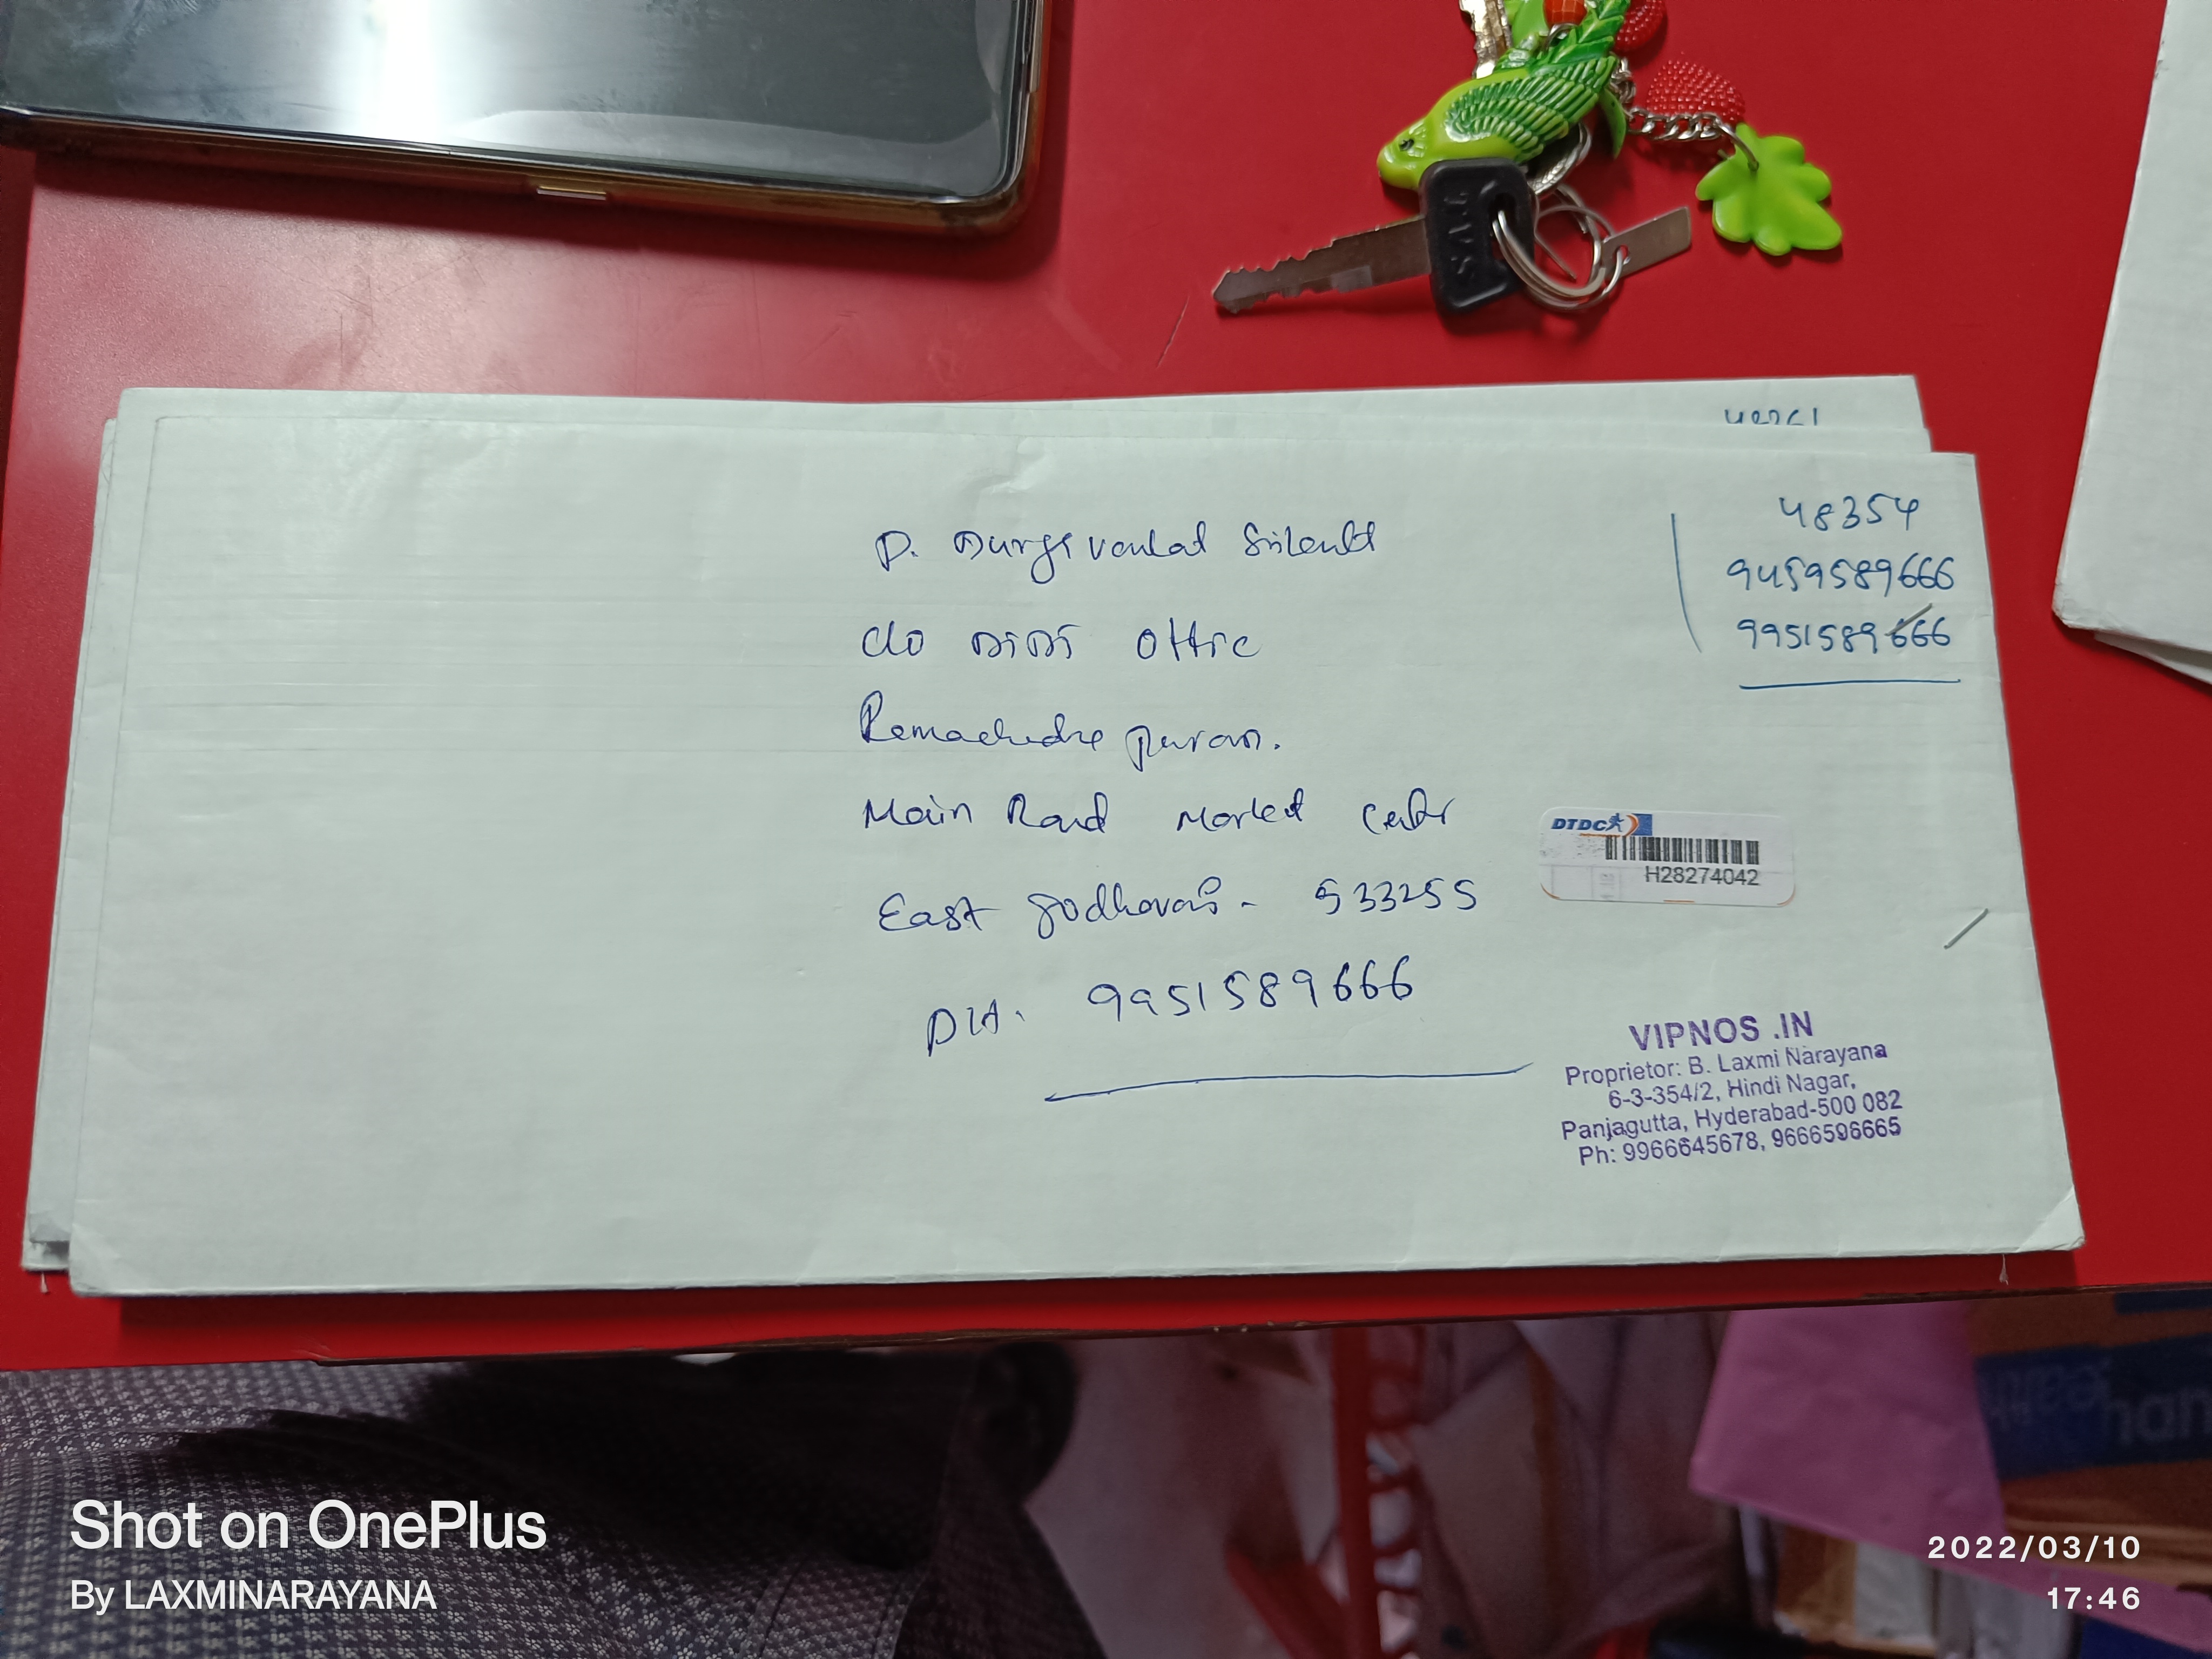 SAVI
48354
9459589666
9951589666
P. Durga venkat Srikanth
C/O DTDC Office
Ramachandra puram.
Main Road Market Center
East Godhavari - 533255
PH. 9951589666
DTDC
H28274042
VIPNOS .IN
Proprietor: B. Laxmi Narayana
6-3-354/2, Hindi Nagar,
Panjagutta, Hyderabad-500 082
Ph: 9966645678, 9666596665
Shot on OnePlus
By LAXMINARAYANA
2022/03/10
17:46